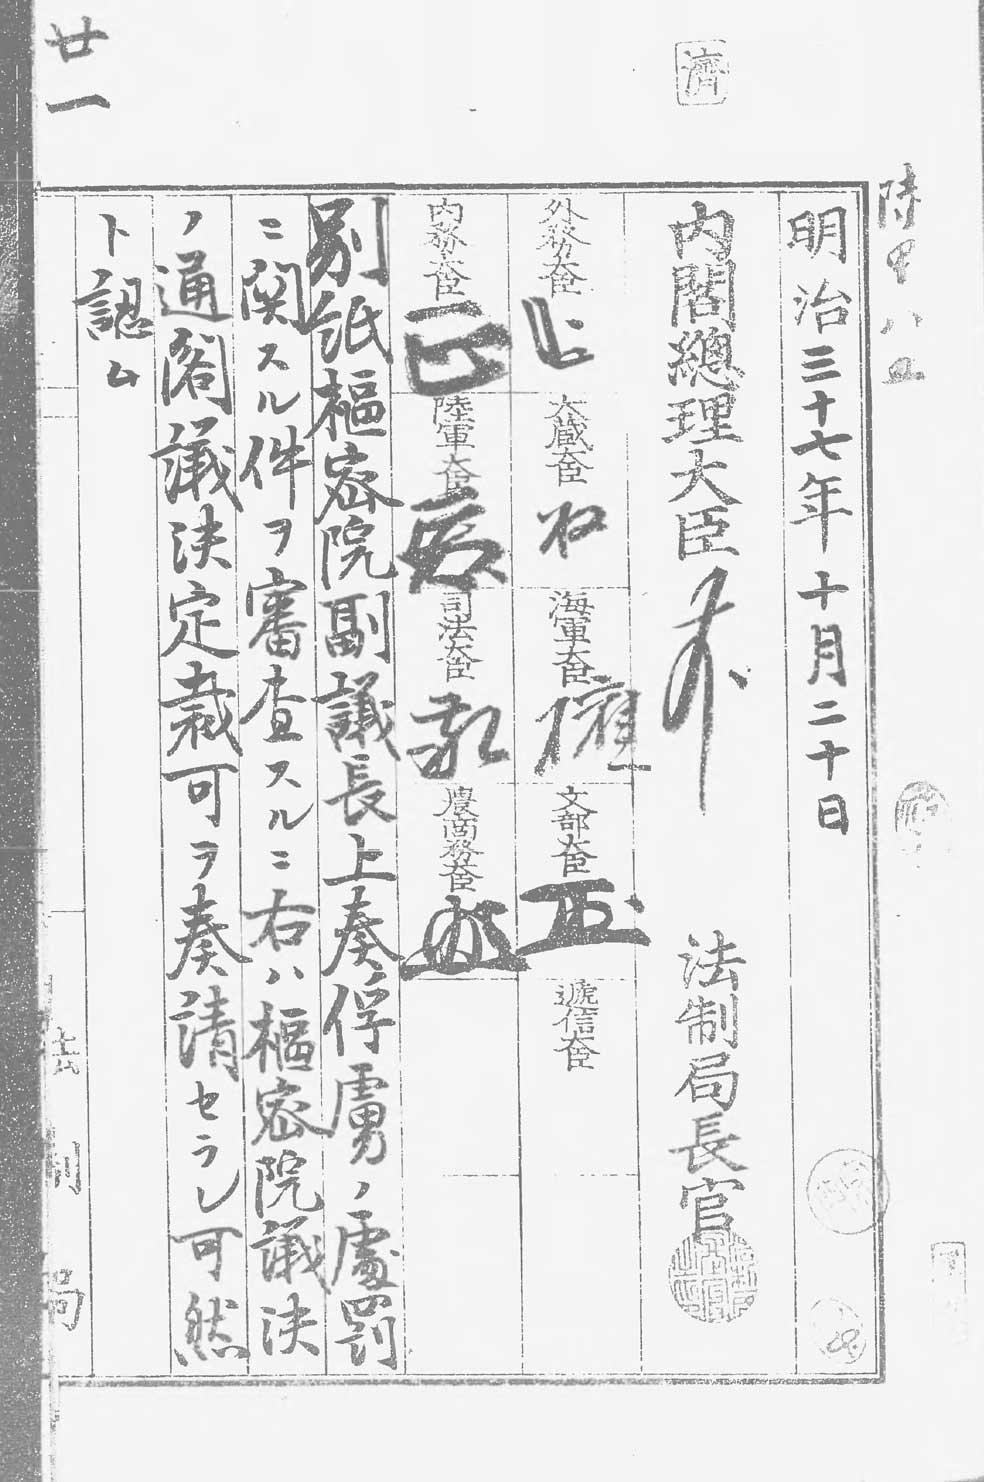 廿一
濟
陸甲八五
明治三十七年十月二十日
内閣總理大臣
法制局長官
外務大臣
大蔵大臣
海軍大臣
文部大臣
遞信大臣
内務大臣
陸軍大臣
司法大臣
農商務大臣
別紙樞密院副議長上奏俘虜ノ處罰
ニ関スル件ヲ審査スルニ右ハ樞密院議決
ノ通閣議決定裁可ヲ奏請セラレ可然
ト認ム
法制局